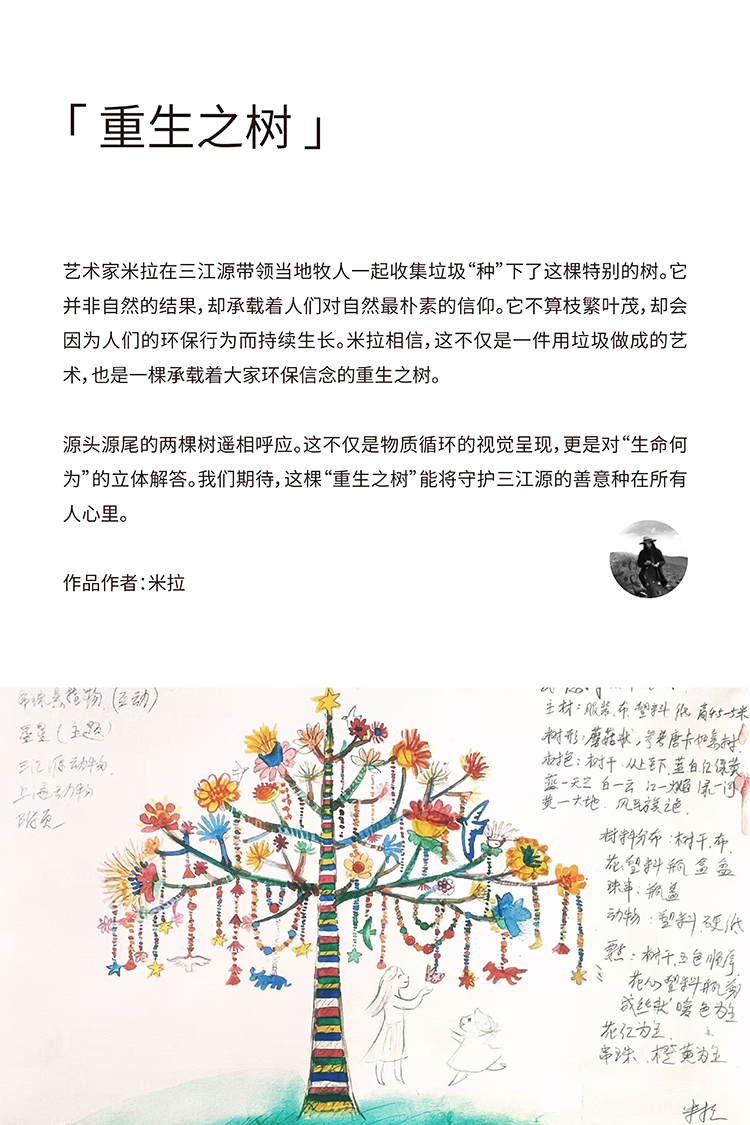 「重生之树」
艺术家米拉在三江源带领当地牧人一起收集垃圾“种”下了这棵特别的树。它
并非自然的结果，却承载着人们对自然最朴素的信仰。它不算枝繁叶茂，却会
因为人们的环保行为而持续生长。米拉相信，这不仅是一件用垃圾做成的艺
术，也是一棵承载着大家环保信念的重生之树。
源头源尾的两棵树遥相呼应。这不仅是物质循环的视觉呈现，更是对“生命何
为”的立体解答。我们期待，这棵“重生之树”能将守护三江源的善意种在所有
人心里。
作品作者：米拉
串珠悬挂物（互动）
星星（主题）
三江源动物
上海动物
主材：服装.布.塑料.纸 高4.5-5米
树形：蘑菇状，参考唐卡如意树.
树色：树干.从上至下.蓝白红绿黄
蓝一天空 白一云 红一火焰 绿一河
黄一大地. 风马旗色
材料分布：树干.布.
花.塑料瓶 盒盖
珠串：瓶盖
动物：塑料 硬纸
树干.五色顺序.
花心塑料瓶剪
成丝状 暖色为主
花红为主.
串珠.橙黄为主
米拉